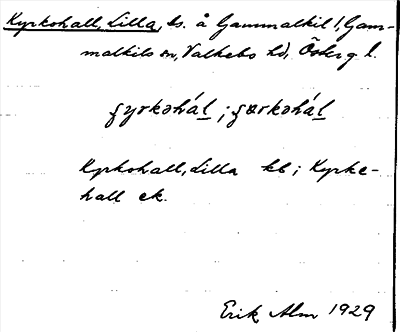 Kyrkohall, Lilla, ls. å Gammalkil 1, Gam-
malkils sn, Valkebo hd, Östergl.
kyrkohall, Lilla kb; Kyrke-
hall ek.
Erik Alm 1929